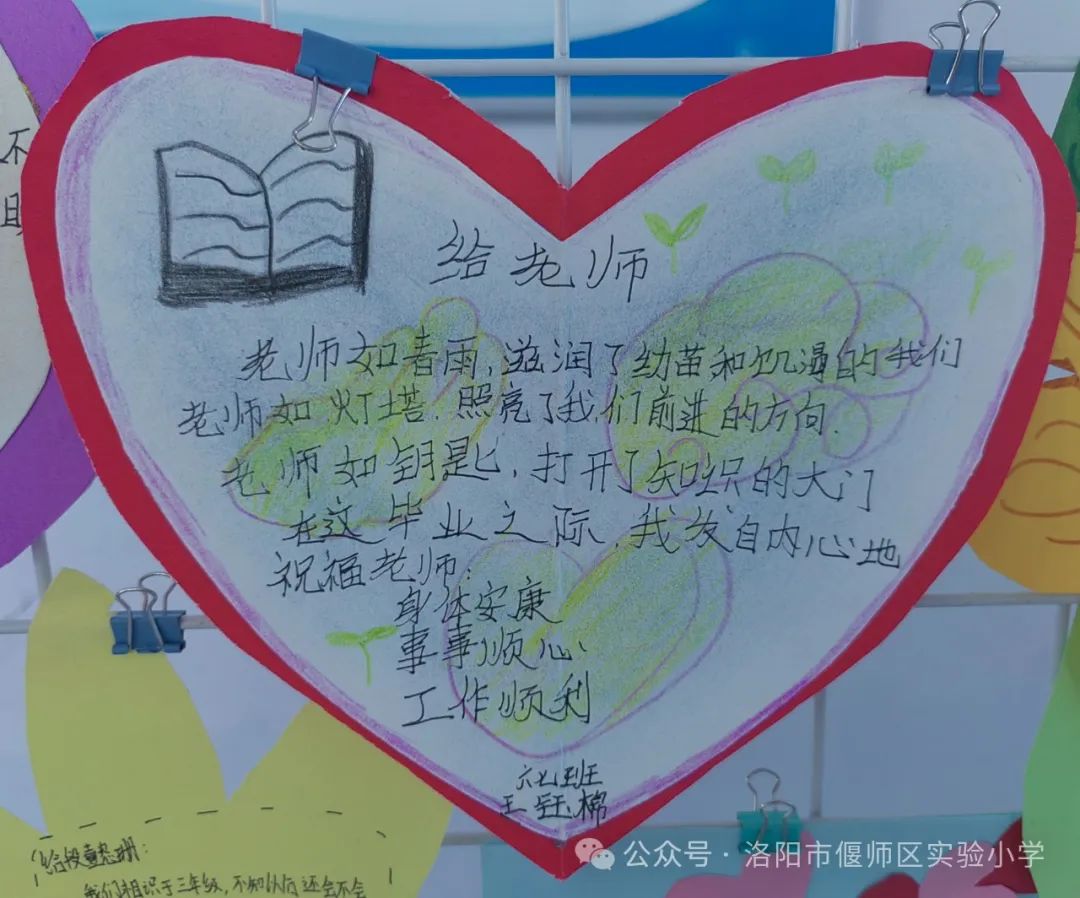 给老师
老师如春雨,滋润了幼苗和饥渴的我们
老师如灯塔.照亮了我们前进的方向.
老师如钥匙,打开了知识的大门
在这毕业之际 我发自内心地
祝福老师:
身体安康
事事顺心
工作顺利
六七班
王钰棉
不
我们相识于三年级,不知以后还会不会
公众号·洛阳市偃师区实验小学